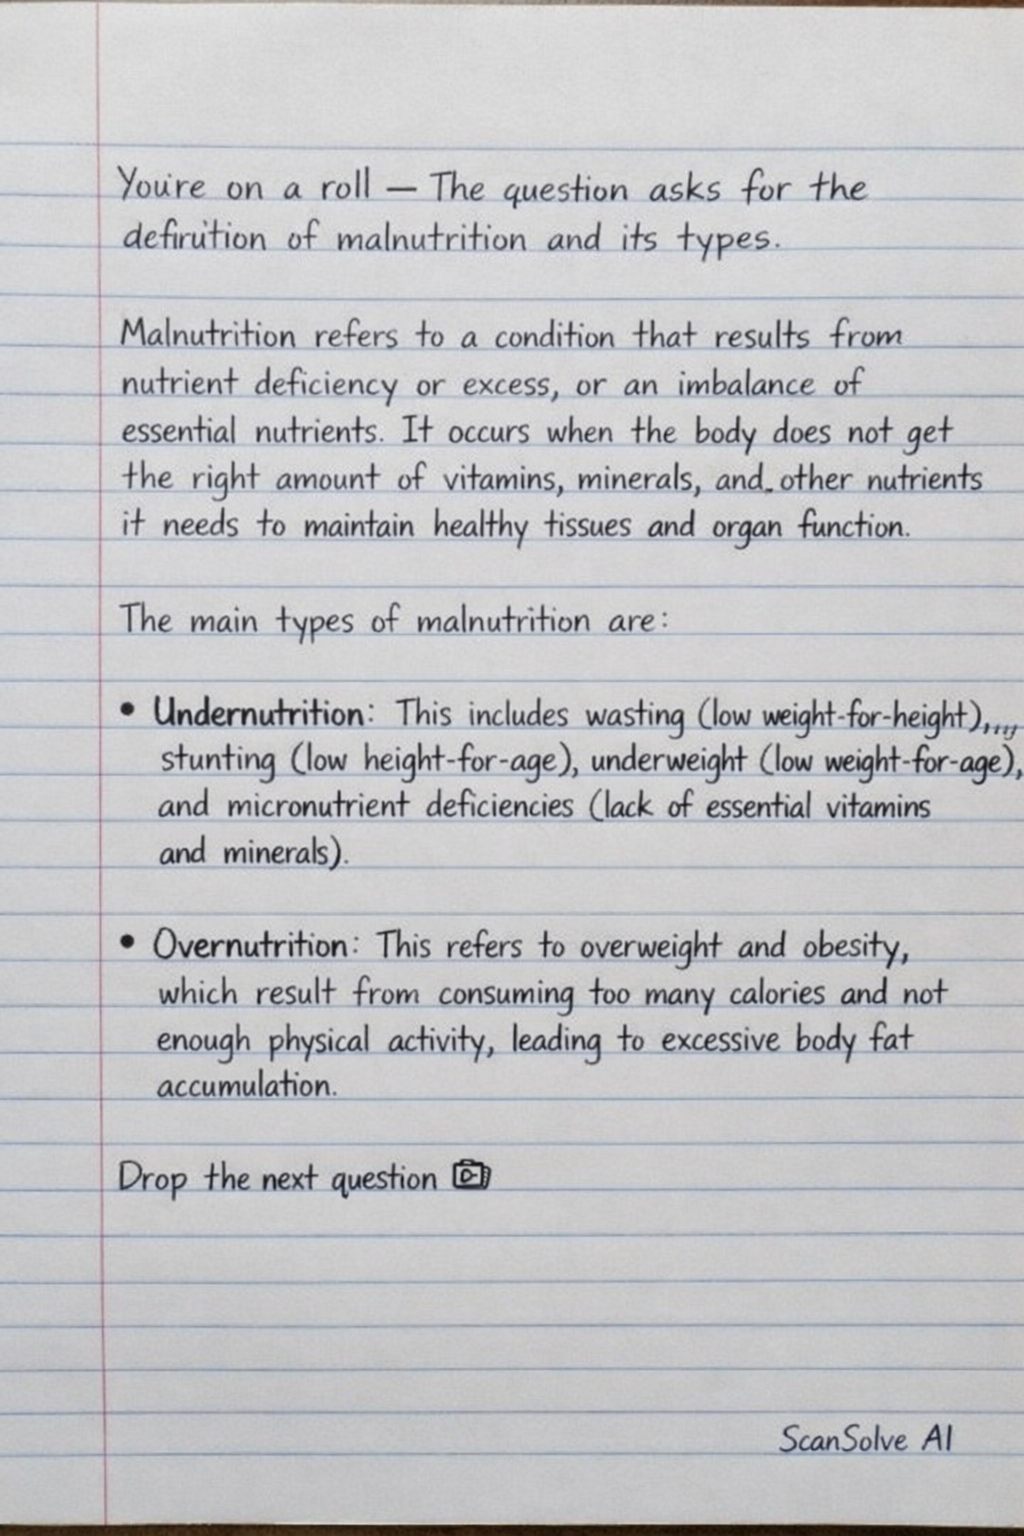 You're on a roll — The question asks for the
definition of malnutrition and its types.
Malnutrition refers to a condition that results from
nutrient deficiency or excess, or an imbalance of
essential nutrients. It occurs when the body does not get
the right amount of vitamins, minerals, and other nutrients
it needs to maintain healthy tissues and organ function.
The main types of malnutrition are:
• Undernutrition: This includes wasting (low weight-for-height),,,,,
stunting (low height-for-age), underweight (low weight-for-age),
and micronutrient deficiencies (lack of essential vitamins
and minerals).
• Overnutrition: This refers to overweight and obesity,
which result from consuming too many calories and not
enough physical activity, leading to excessive body fat
accumulation.
Drop the next question
ScanSolve AI